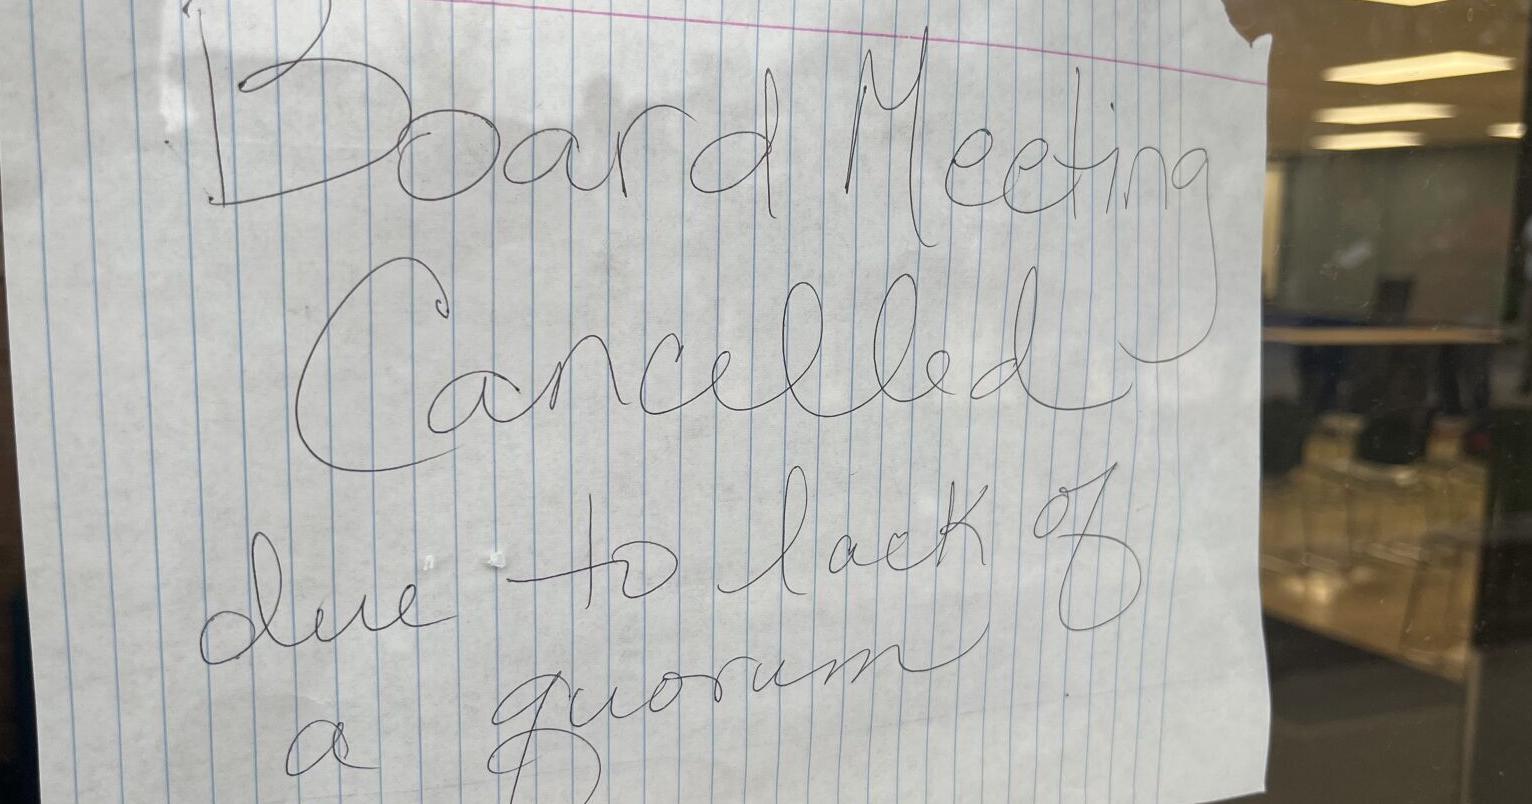 Board Meeting
Cancelled
due to lack of
a quorum